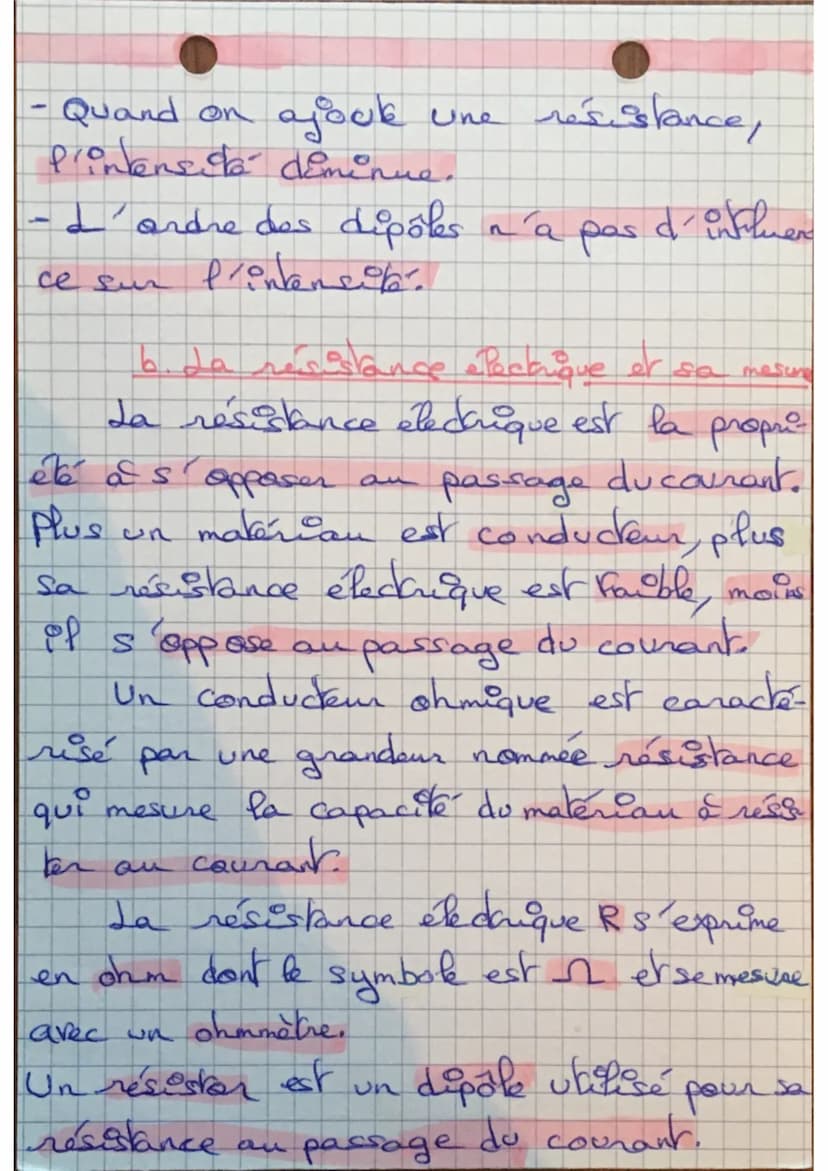 - Quand on ajoute une résistance,
l'intensité diminue.
- L'ordre des dipôles n'a pas d'influen
ce sur l'intensité.
b. La résistance électrique et sa mesure
La résistance électrique est la propri-
été à s'opposer au passage du courant.
Plus un matériau est conducteur, plus
sa résistance électrique est faible, moins
il s'oppose au passage du courant.
Un conducteur ohmique est caracté-
risé par une grandeur nommée résistance
qui mesure la capacité du matériau à résis-
ter au courant.
La résistance électrique R s'exprime
en ohm dont le symbole est Ω et se mesure
avec un ohmmètre.
Un résistor est un dipôle utilisé pour sa
résistance au passage du courant.